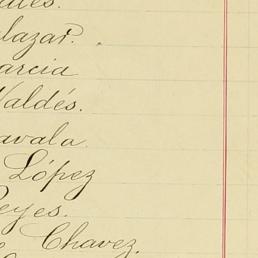 alazar.
arcia
Valdés.
avala
López
eyes.
Chavez.